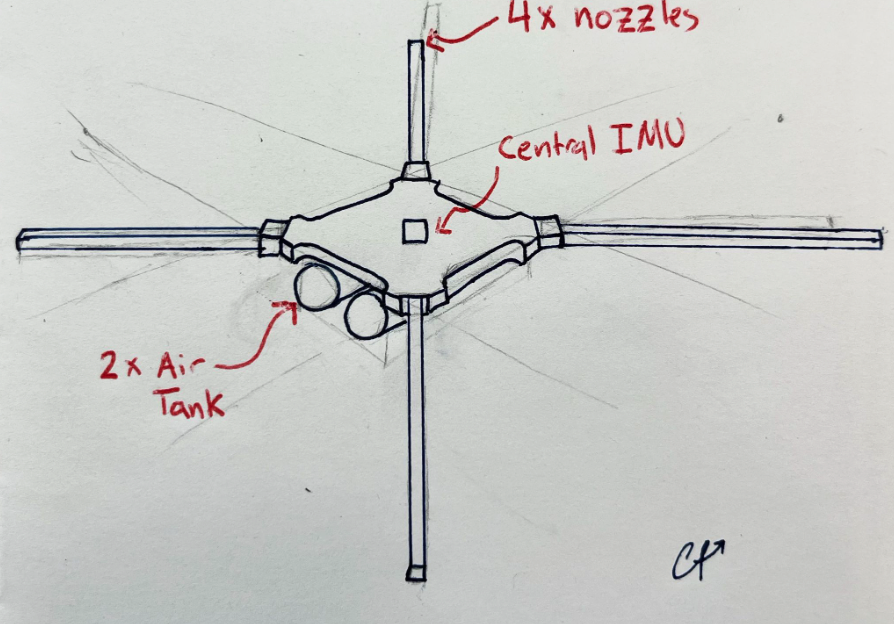 4x nozzles
Central IMU
2x Air
Tank